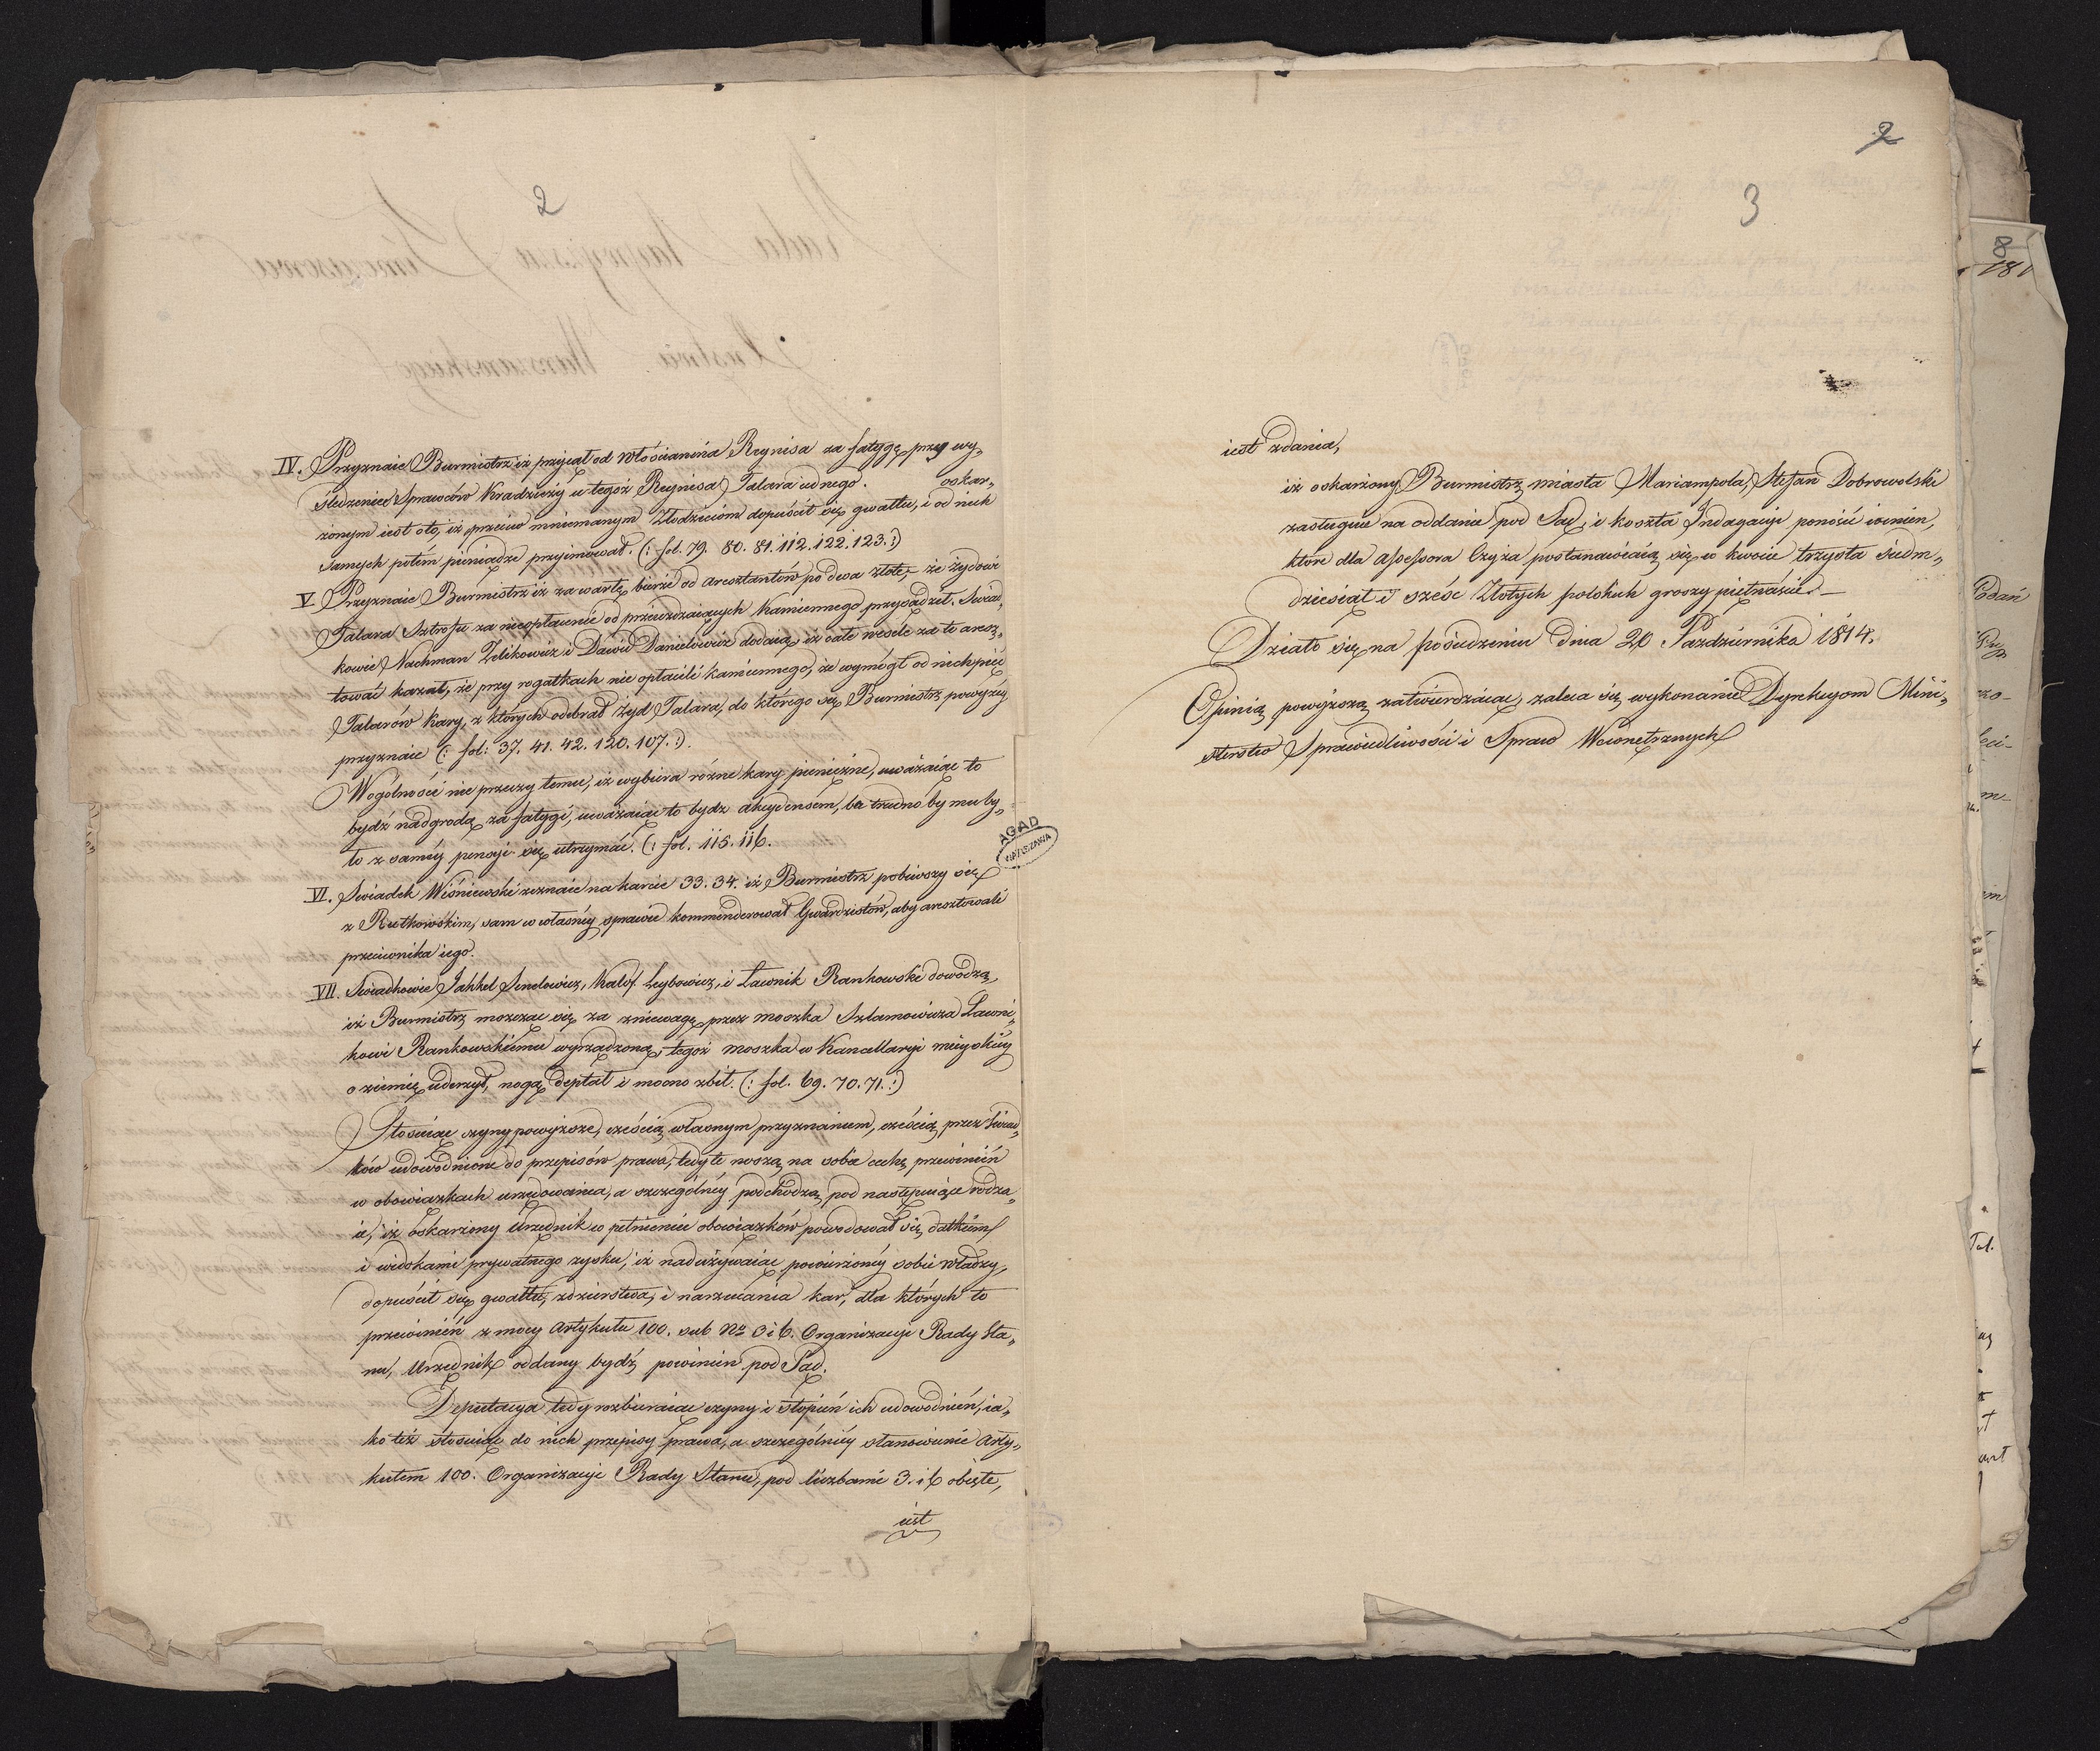 2
IV. Przyznaie Burmistrz iż przyiął od Włościanina Reynisa za fatygę przy wy„
śledzeniu Sprawców Kradzieży u tegoż Reynisa Talara iednego. oskar„
żonym iest oto, iż przeciw mniemanym Złodzieiom dopuścił się gwałtu, i od nich
samych potém pieniądze przyimował. (: fol. 79. 80. 81. 112. 122. 123. :)
V. Przyznaie Burmistrz iż za wartę bierze od aresztantów po dwa złote, że żydowi
Talara Sztrofu za nieopłacenie od przeieżdzaiących Kamiennego przysądził. Świad„
kowie Nachman Zelikowicz i Dawid Danielowicz dodaią, iż całe wesele za to aresz„
tować kazał, że przy rogatkach nie opłacili kamiennego, że wymógł od nich pięć
Talarów kary, z których odebrał żyd Talara, do którego się Burmistrz powyżey
przyznaie (: fol: 37. 41. 42. 120. 107. :).
Wogólności nie przeczy temu, iż wybiera różne kary pieniężne, uważaiąc to
bydź nadgrodą za fatygi, uważaiąc to bydz akcydensem, bo trudno by mu by„
ło z saméy pensyi się utrzymać. (: fol. 115. 116.
VI. Świadek Wiśniewski zeznaie na karcie 33. 34. iż Burmistrz pobiwszy się
z Rutkowskim, sam w własnéy sprawie kommenderował Gwardzistów, aby aresztowali
przeciwnika iego.
VII. Świadkowie Jahkel Senelowicz, Kalof Leybowicz, i Ławnik Rankowski dowodzą,
iż Burmistrz mszcząc się za zniewagę przez Moszka Szlamowicza Ławni„
kowi Rankowskiemu wyrządzoną, tegoż Moszka w Kancellaryi mieyskiey
o ziemię uderzył, nogą deptał i mocno zbił. (: fol. 69. 70. 71. :)
Stosuiąc czyny powyższe, cześcią własnym przyznaniem, cześcią przez Świad„
ków udowodnione do przepisów prawa, tedy te noszą na sobie cechę przewinień
w obowiązkach urzędowania, a szczególniéy podchodzą pod następuiące rodza„
ie, iż oskarżony Urzędnik w pełnieniu obowiązków powodował się datkiem
i widokami prywatnego zysku, iż nadużywaiąc powierzonéy sobie władzy,
dopuścił się gwałtu, zdzierstwa, i narzucania kar, dla których to
przewinień z mocy Artykułu 100. sub No 3 i 6. Organizacyi Rady Sta„
nu, Urzędnik oddany bydź powinien pod Sąd.
Deputacya tedy rozbieraiąc czyny i stopień ich udowodnień, ia„
ko też stosuiąc do nich przepisy prawa, a szczególniéy stanowienie Arty„
kułem 100. Organizacyi Rady Stanu, pod liczbami 3. i 6 obięte,
iest
AGAD
WARSZAWA
2
3
iest zdania,
iż oskarżony Burmistrz miasta Mariampola, Stefan Dobrowolski
zasługuie na oddanie pod Sąd, i koszta Indagacyi ponosić winien,
które dla Assessora Czyża postanawiaią się w kwocie trzysta siedm„
dziesiąt i sześć Złotych polskich groszy piętnaście.—
Działo się na posiedzeniu dnia 20 Października 1814.
Opinią powyższą zatwierdzaiąc, zaleca się wykonanie Dyrekcyom Mini„
sterstw Sprawiedliwości i Spraw Wewnętrznych
8
Podań